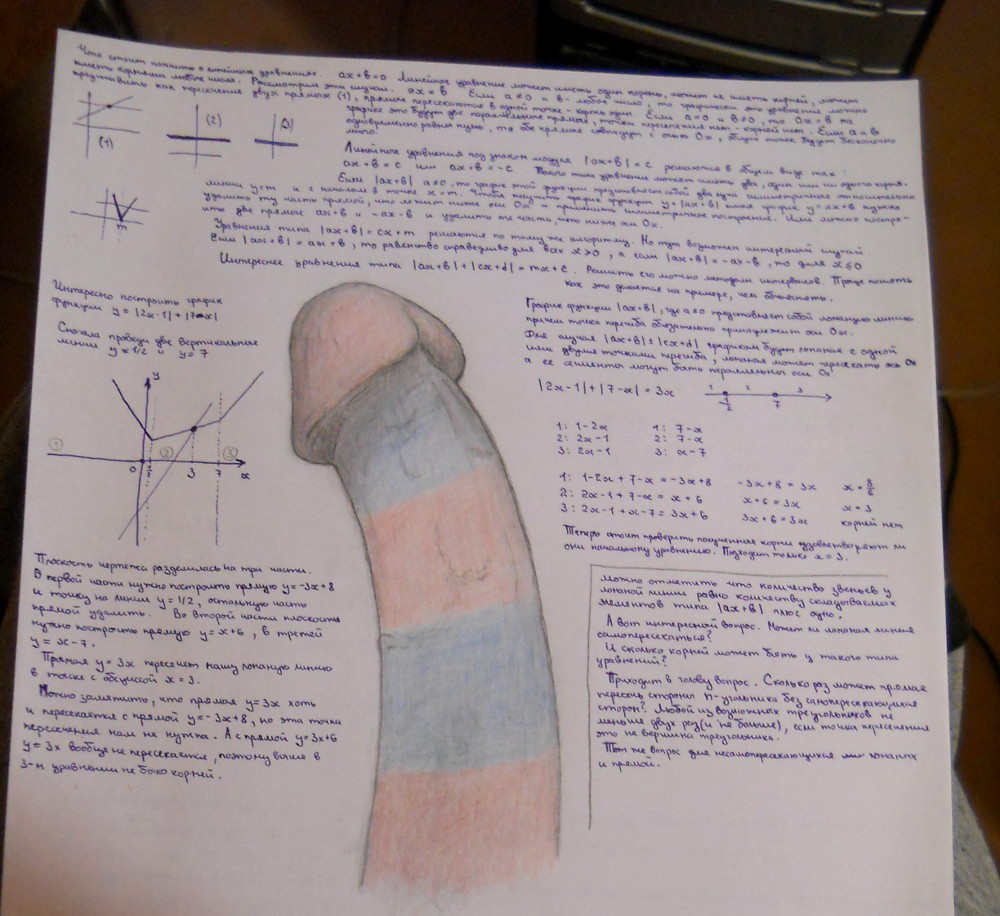 Что стоит помнить о линейных уравнениях. ax+b=0 Линейное уравнение может иметь один корень, может не иметь корней, может
иметь корнями любое число. Рассмотрим эти случаи. ax = b Если a≠0 и b - любое число, то графически это уравнение можно
представить как пересечение двух прямых (1), прямые пересекаются в одной точке - корень один. Если a=0 и b≠0, то 0x=b на
графике это будут две параллельные прямые, точки пересечения нет - корней нет. Если a и b
одновременно равны нулю, то обе прямые совпадут с осью Ox, общих точек будет бесконечно
много.
(1)
(2)
(3)
Линейное уравнения под знаком модуля |ax+b|=c решаются в общем виде так:
ax+b=c или ax+b=-c Такого типа уравнения может иметь два, один или ни одного корня.
Если |ax+b| a≠0, то график этой функции представляет собой два луча симметричные относительно
линии y=m и с началом в точке x=m. Чтобы получить график функции y=|ax+b| имея график y=ax+b нужно
удалить ту часть прямой, что лежит ниже оси Ox и применить симметричное построение. Или можно построить
две прямые ax+b и -ax-b и удалить те части, что ниже оси Ox.
m
Уравнения типа |ax+b|=cx+m решаются по тому же алгоритму. Но тут возможен интересный случай
Если |ax+b|=ax+b, то равенство справедливо для всех x>0, а если |ax+b|=-ax-b, то для x≤0
Интереснее уравнения типа |ax+b|+|cx+d|=mx+c. Решить его можно методом интервалов. Проще понять
как это делается на примере, чем объяснять.
Интересно построить график
функции y=|2x-1|+|7-x|
Сначала проведём две вертикальные
линии y=1/2 и y=7
1
2
3
y
0
1/2
3
7
x
Плоскость чертежа разделилась на три части.
В первой части нужно построить прямую y=-3x+8
и точку на линии y=1/2, остальную часть
прямой удалить. Во второй части плоскости
нужно построить прямую y=x+6, в третей
y=x-7.
Прямая y=3x пересечёт нашу ломаную линию
в точке с абсциссой x=3.
Можно заметить, что прямая y=3x хоть
и пересекается с прямой y=-3x+8, но эта точка
пересечения нам не нужна. А с прямой y=3x+6
y=3x вообще не пересекается, поэтому выше в
3-м уравнении не было корней.
График функции |ax+b|, где a≠0 представляет собой ломаную линию
причём точка перегиба обязательно принадлежит оси Ox.
Для случая |ax+b|±|cx+d| графиком будет ломаная с одной
или двумя точками перегиба, ломаная может пересекать ось Ox
а её сегменты могут быть параллельны оси Ox
|2x-1|+|7-x|=3x
1 2 3
1/2 7
1: 1-2x 1: 7-x
2: 2x-1 2: 7-x
3: 2x-1 3: x-7
1: 1-2x+7-x=-3x+8 -3x+8=3x x=8/6
2: 2x-1+7-x=x+6 x+6=3x x=3
3: 2x-1+x-7=3x+6 3x+6=3x корней нет
Теперь стоит проверить полученные корни удовлетворяют ли
они начальному уравнению. Подходит только x=3.
можно отметить что количество звеньев у
ломаной линии равно количеству складываемых
элементов типа |ax+b| плюс одно.
А вот интересный вопрос. Может ли ломаная линия
самопересекаться?
И сколько корней может быть у такого типа
уравнений?
Приходит в голову вопрос. Сколько раз может прямая
пересечь стороны n-угольника без самопересекающихся
сторон? Любой из возможных треугольников не
меньше двух раз (и не больше), если точка пересечения
это не вершина треугольника.
Тот же вопрос для несамопересекающихся ломаных
и прямой.